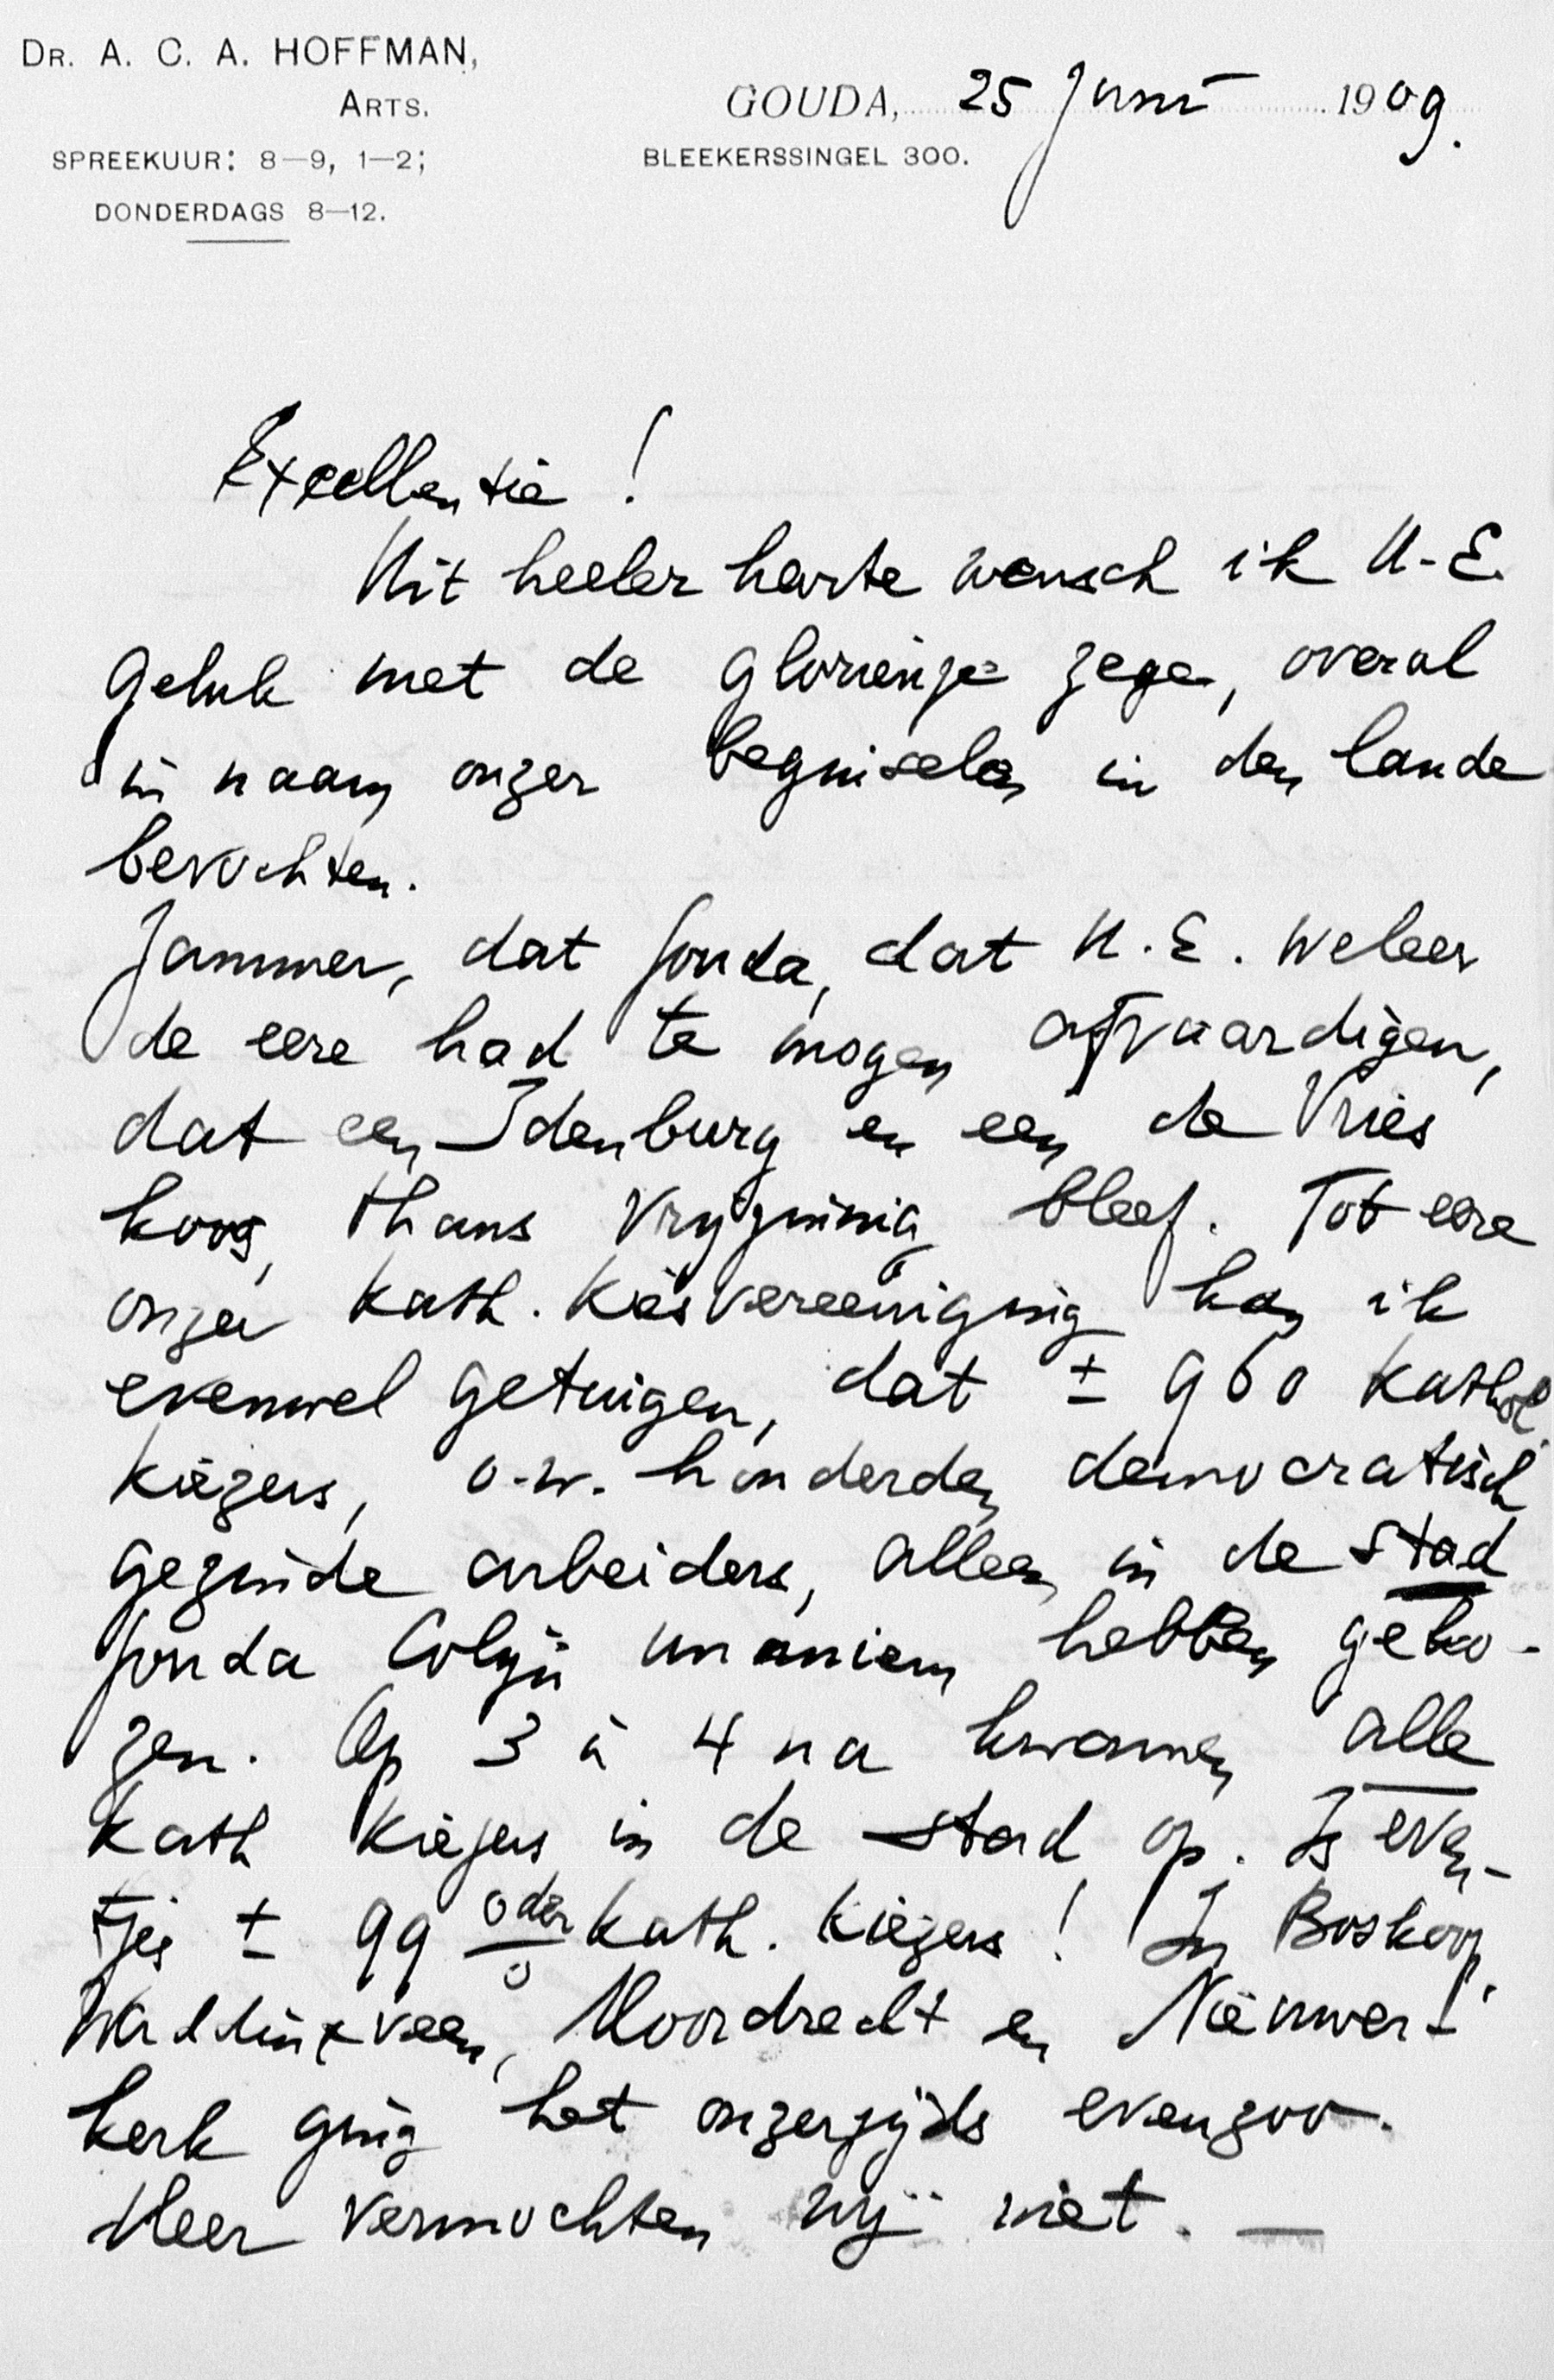 DR. A. C. A. HOFFMAN,
ARTS.
SPREEKUUR: 8—9, 1—2;
DONDERDAGS 8—12.
GOUDA, 25 Juni 1909.
BLEEKERSSINGEL 300.
Excellentie!
Uit heeler harte wensch ik U.E.
geluk met de glorierijke zege, overal
in naam onzer beginselen in den lande
bevochten.
Jammer, dat Gouda, dat U.E. weleer
de eere had te mogen afvaardigen,
dat een Idenburg en een de Vries
koos, thans vrijzinnig bleef. Tot eere
onzer Kath. Kiesvereeniging kan ik
evenwel getuigen, dat ± 960 kathol.
kiezers, o.w. honderden democratisch
gezinde arbeiders, alleen in de stad
Gouda Colijn unaniem hebben geko-
zen. Op 3 à 4 na kwamen alle
Kath kiezers in de stad op. Is even-
tjes ± 99 % der kath. kiezers! In Boskoop,
Waddinxveen, Moordrecht en Nieuwer-
kerk ging het onzerzijds evenzoo.
Meer vermochten wij niet. —